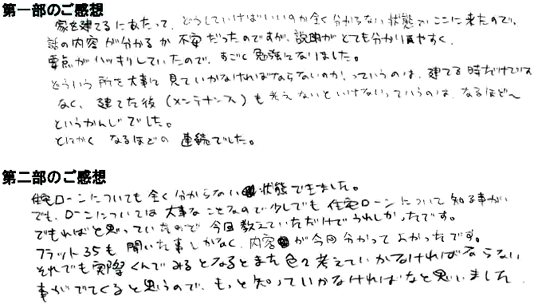 第一部のご感想
家を建てるにあたって、どうしていけばいいのか全く分からない状態でここに来たので、
話の内容が分かるか不安だったのですが、説明がとても分かり易やすく、
要点がハッキリしていたので、すごく勉強になりました。
どういう所を大事に見ていかなければならないのか!っていうのは、建てる時だけでは
なく、建てた後(メンテナンス)も考えないといけないっていうのは、なるほど〜
というかんじでした。
とにかく なるほどの 連続でした。
第二部のご感想
住宅ローンについても全く分からない状態できました。
でも、ローンについては大事なことなので少しでも住宅ローンについて知る事が
でもればと思っていたので今回教えていただけてうれしかったです。
フラット35も聞いた事しかなく、内容が今回分かってよかったです。
それでも実際くんでみるとなるとまた色々考えていかなければならない
事がでてくると思うので、もっと知っていかなければなと思いました